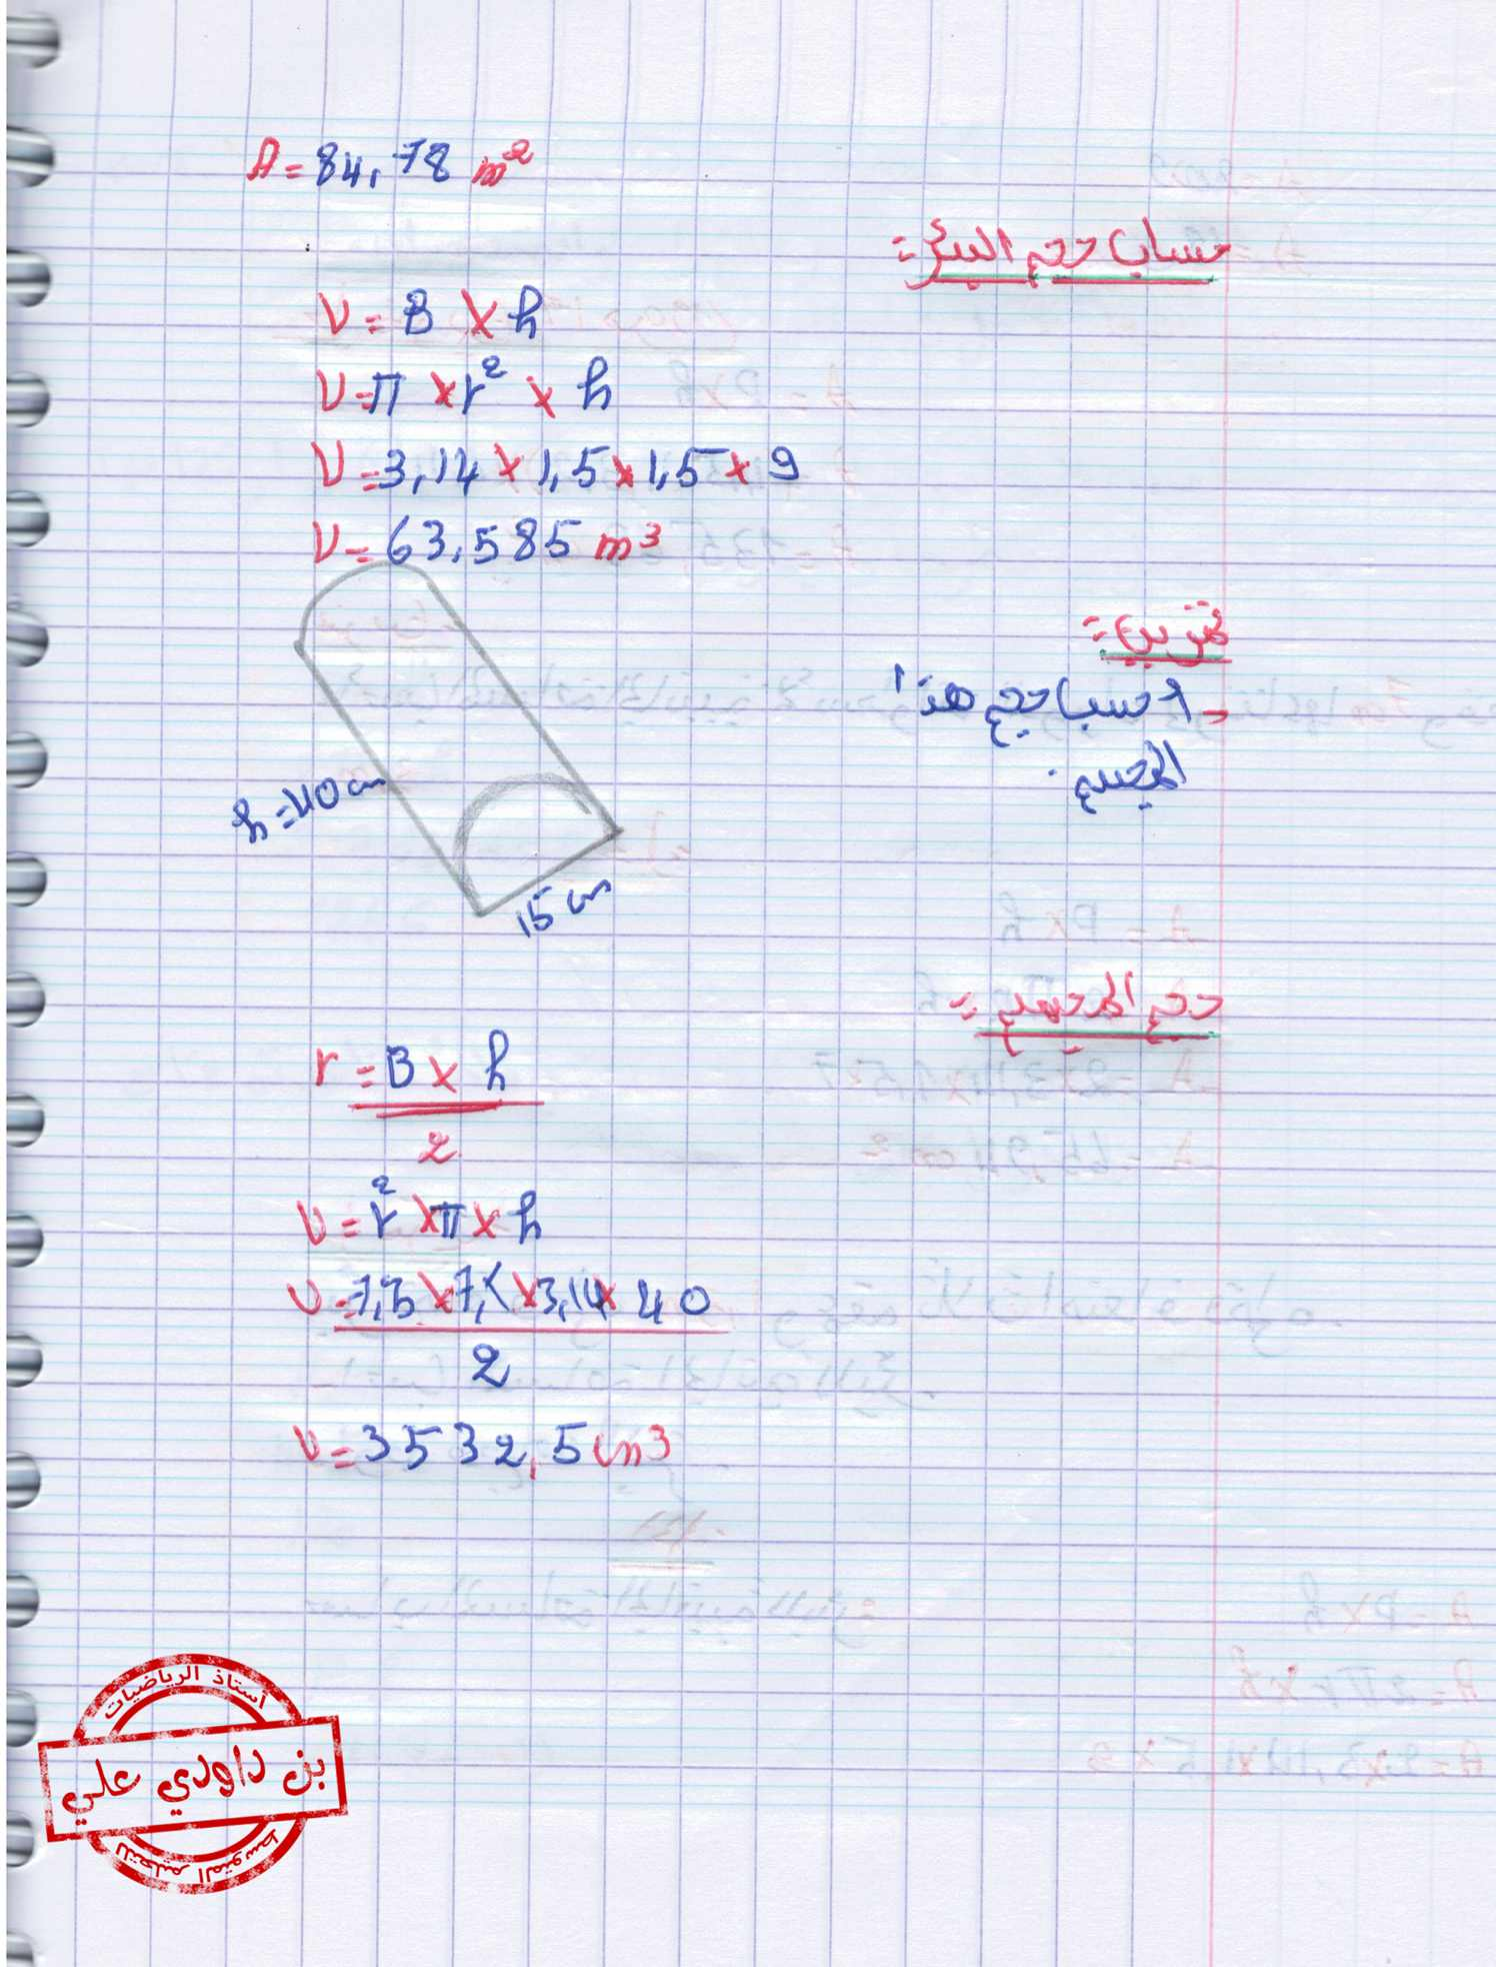 A = 84,78 m²
حساب حجم البئر =
V = B × h
V = π × r² × h
V = 3,14 × 1,5 × 1,5 × 9
V = 63,585 m³
تمرين =
- احسب حجم هذا
المجسم.
h = 40 cm
15 cm
حجم المجسم =
r = B × h
2
V = r² × π × h
V = 7,5 × 7,5 × 3,14 × 40
2
V = 3532,5 cm³
أستاذ الرياضيات
بن داودي علي
للتعليم المتوسط